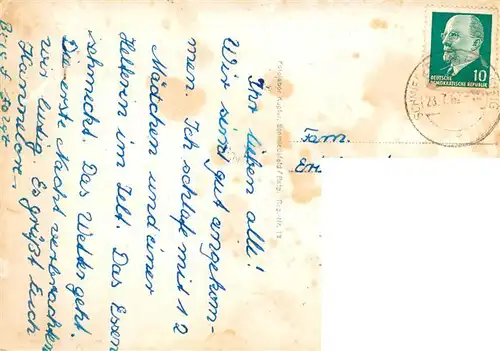 Ihr lieben all!
Wir sind gut angekom-
men. Ich schlafe mit 12
Mädchen und einer
Helferin im Zelt. Das Essen
schmeckt. Das Wetter geht.
Die erste Nacht verbrachten
wir lustig. Es grüßt Euch
Hannelore.
Fam.
10
DEUTSCHE
DEMOKRATISCHE REPUBLIK